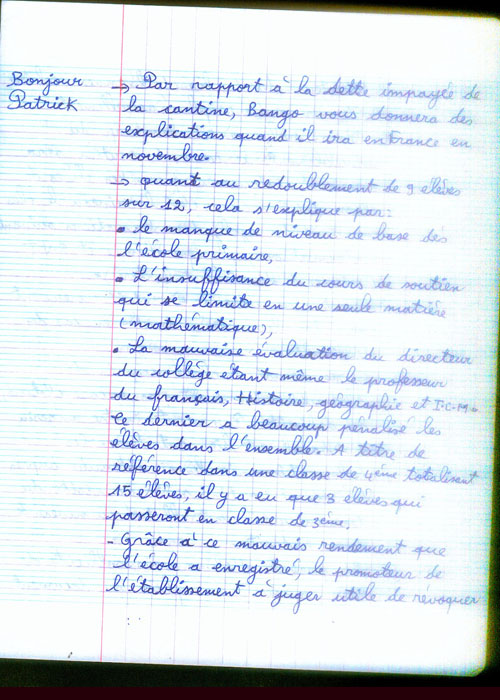 Bonjour
Patrick
→ Par rapport à la dette impayée de
la cantine, Bango vous donnera des
explications quand il ira en France en
novembre.
→ quant au redoublement de 9 élèves
sur 12, cela s'explique par:
• le manque de niveau de base des
l'école primaire,
• L'insuffisance du cours de soutien
qui se limite en une seule matière
(mathématique),
• La mauvaise évaluation du directeur
du collège étant même le professeur
du français, Histoire, géographie et I.C.M.
Ce dernier a beaucoup pénalisé les
élèves dans l'ensemble. A titre de
référence dans une classe de 4ème totalisant
15 élèves, il y a eu que 3 élèves qui
passeront en classe de 3ème.
- Grâce à ce mauvais rendement que
l'école a enregistré, le promoteur de
l'établissement a juger utile de révoquer